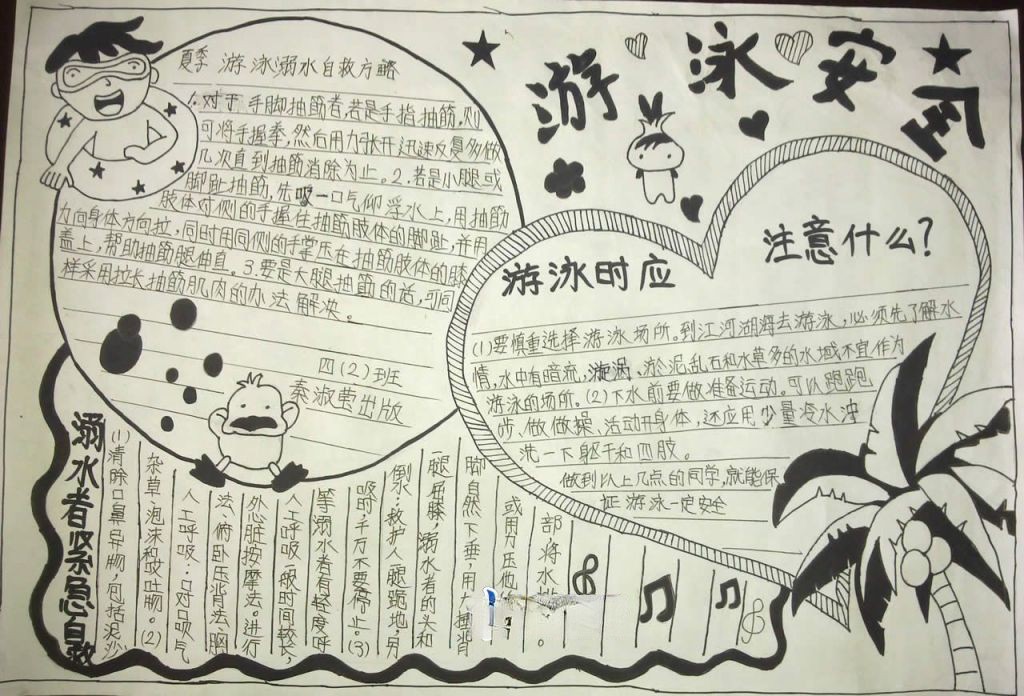 游泳安全
夏季 游泳溺水自救方略
1.对于手脚抽筋者,若是手指抽筋,则
可将手握拳,然后用力张开迅速反复多做
几次直到抽筋消除为止。2.若是小腿或
脚趾抽筋,先吸一口气仰浮水上,用抽筋
肢体对侧的手握住抽筋肢体的脚趾,并用
力向身体方向拉,同时用同侧的手掌压在抽筋肢体的膝
盖上,帮助抽筋腿伸直。3.要是大腿抽筋的话,可同
样采用拉长抽筋肌肉的办法解决。
四(2)班
秦淑莹出版
游泳时应
注意什么?
(1)要慎重选择游泳场所。到江河湖海去游泳,必须先了解水
情,水中有暗流,漩涡、淤泥,乱石和水草多的水域不宜作为
游泳的场所。(2)下水前要做准备运动。可以跑跑
步、做做操、活动开身体,还应用少量冷水冲
洗一下躯干和四肢。
做到以上几点的同学,就能保
证游泳一定安全
溺水者紧急自救
(1)清除口鼻异物,包括泥沙
杂草,泡沫和呕吐物。(2)
人工呼吸:口对口吹气
法、俯卧压背法、胸
外心脏按摩法。进行
人工呼吸一般时间较长,
等溺水者有轻度呼
吸时千万不要停止。(3)
倒水:救护人一腿跪地,另一
腿屈膝,溺水者的头和
脚自然下垂,用大 背
或用力压他
部将水 。